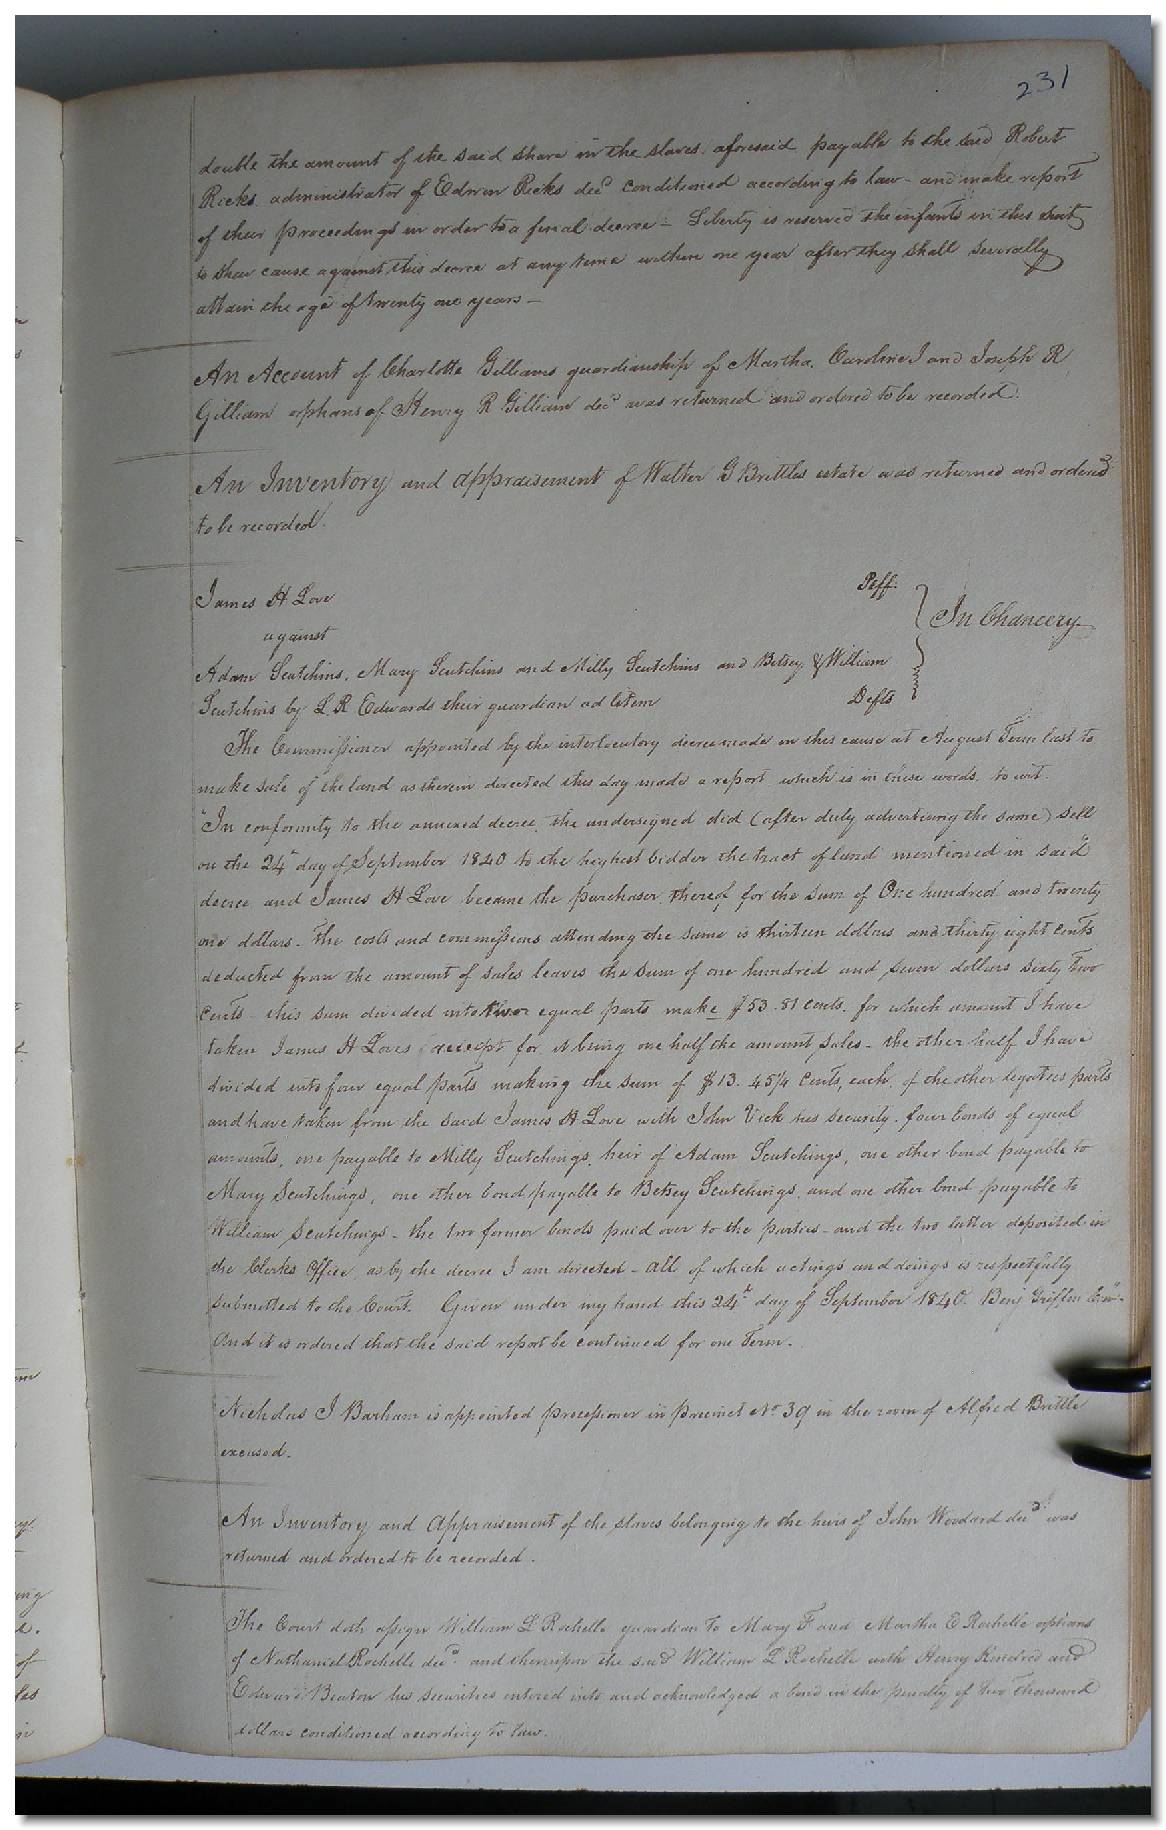 231
double the amount of the said share in the slaves aforesaid payable to the said Robert
Ricks administrator of Edwin Ricks decd conditioned according to law - and make report
of their proceedings in order to a final decree - Liberty is reserved the infants in this suit
to shew cause against this decree at any time within one year after they shall severally
attain the age of twenty one years -
An Account of Charlotte Gilliams guardianship of Martha, Caroline J and Joseph R
Gilliam orphans of Henry R Gilliam decd was returned and ordered to be recorded.
An Inventory and appraisement of Walter G Brittles estate was returned and ordered
to be recorded.
James H Love Plff.
against
In Chancery
Adam Scutchins, Mary Scutchins and Milly Scutchins and Betsey & William
Scutchins by L. R Edwards their guardian ad litem Defts
The Commissioner appointed by the interlocutory decree made in this cause at August Term last to
make sale of the land as therein directed this day made a report which is in these words, to wit.
"In conformity to the annexed decree, the undersigned did (after duly advertising the same) sell
on the 24th day of September 1840 to the highest bidder the tract of land mentioned in said
decree and James H Love became the purchaser thereof for the sum of One hundred and twenty
one dollars - The costs and commissions attending the same is thirteen dollars and thirty eight cents
deducted from the amount of sales leaves the sum of one hundred and seven dollars sixty two
cents - this sum divided into two equal parts make $53.81 cents. for which amount I have
taken James H Loves receipt for it being one half the amount sales - the other half I have
divided into four equal parts making the sum of $13. 45 1/4 cents, each, of the other legatees parts
and have taken from the said James H Love with John Vick his security. four bonds of equal
amounts, one payable to Milly Scutchings, heir of Adam Scutchings, one other bond payable to
Mary Scutchings, one other bond payable to Betsey Scutchings, and one other bond payable to
William Scutchings - the two former bonds paid over to the parties - and the two latter deposited in
the Clerks Office, as by the decree I am directed - all of which actings and doings is respectfully
submitted to the Court. Given under my hand this 24th day of September 1840. Benj Griffin Comr"
And it is ordered that the said report be continued for one Term.
Nicholas J Barham is appointed processioner in precinct No 39 in the room of Alfred Brittle
excused.
An Inventory and Appraisement of the slaves belonging to the heirs of John Woodard decd was
returned and ordered to be recorded.
The Court doth assign William L Rochelle guardian to Mary F and Martha E Rochelle orphans
of Nathaniel Rochelle decd. and thereupon the said William L Rochelle with Henry Kindred and
Edward Beaton his securities entered into and acknowledged a bond in the penalty of two thousand
dollars conditioned according to law.